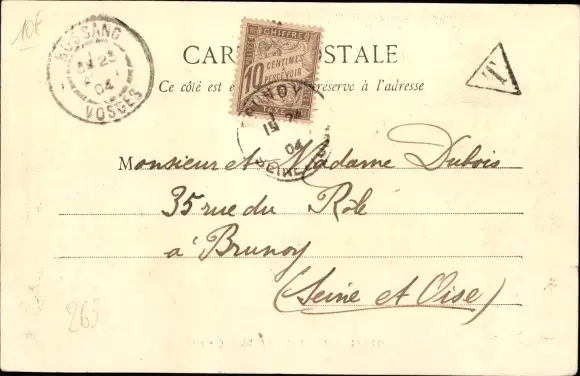 10€
BUSSANG
23
04
VOSGES
CARTE POSTALE
Ce côté est exclusivement réservé à l'adresse
CHIFFRE
10 CENTIMES À PERCEVOIR
TAXE
T
BRUNOY
1
04
SEINE
Monsieur et Madame Dubois
35 rue du Rôle
à Brunoy
(Seine et Oise)
263